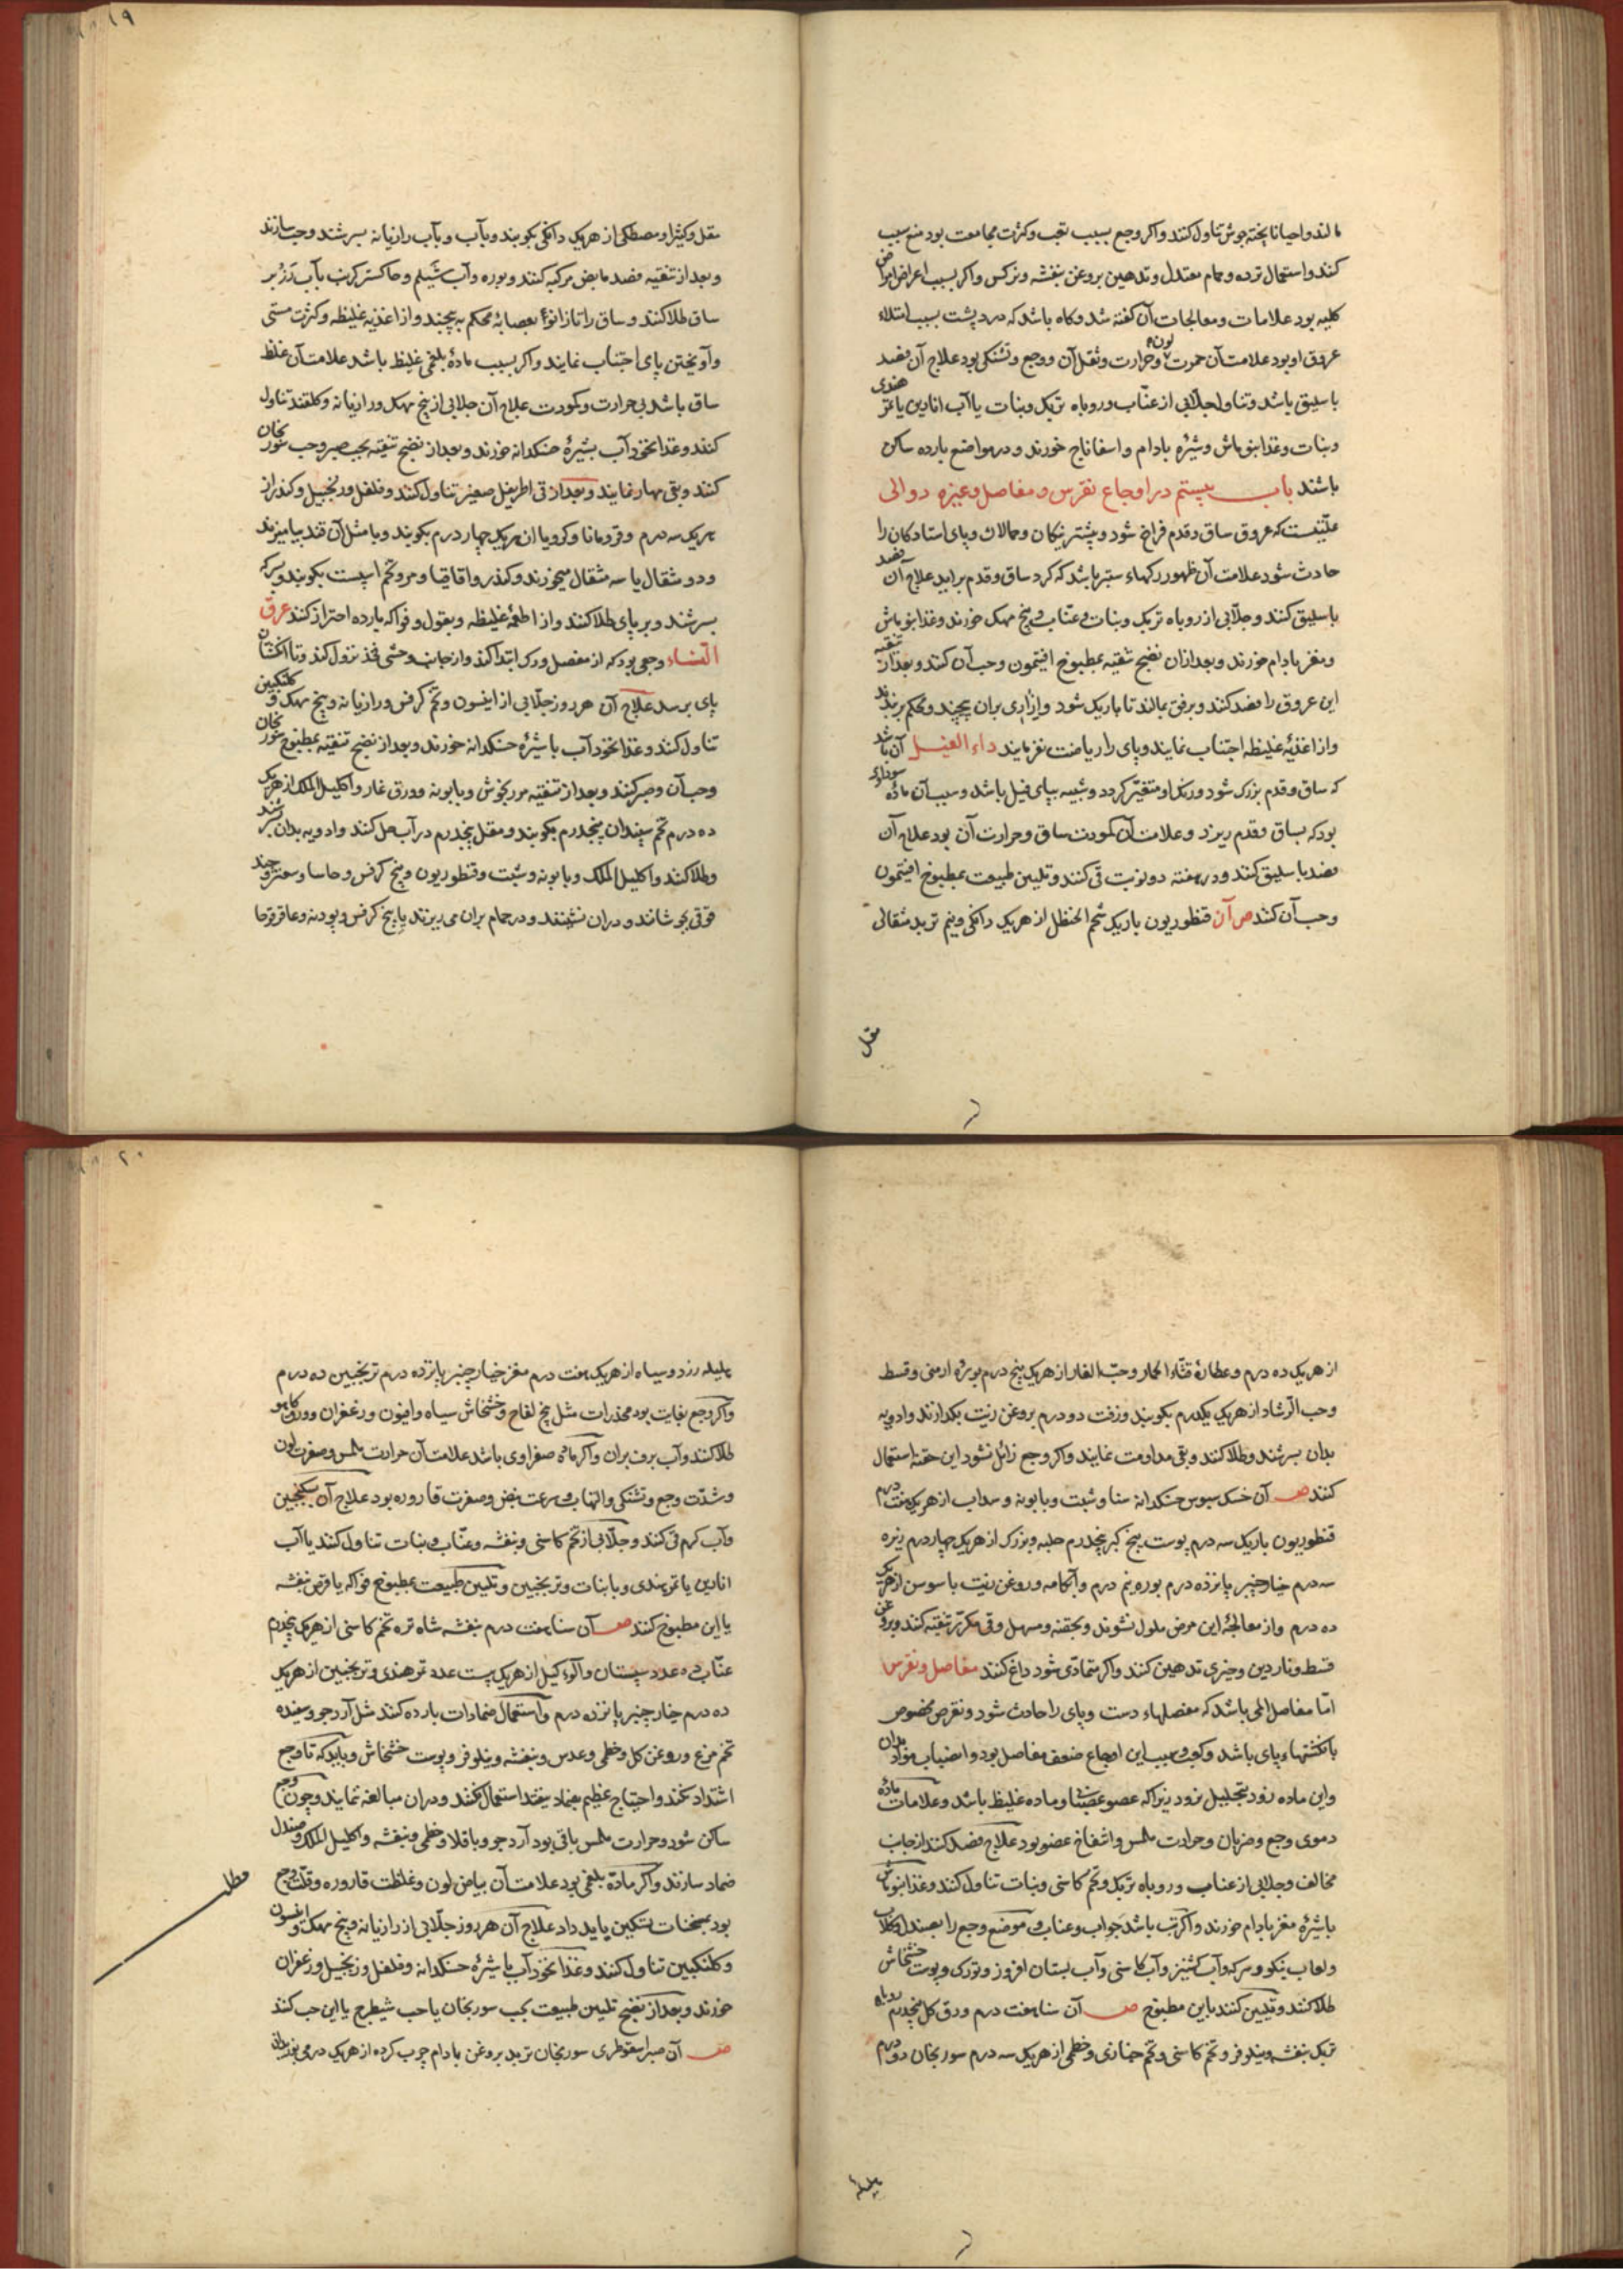 مالند و احیانا پخته جوش تناول کنند و اکر وجع بسبب تعب و کثرت مجامعت بود منع سبب
کنند و استعمال نرده و حمام معتدل و تدهین بروغن بنفشه و نرکس و اکر بسبب اعراض امراض
کلیه بود علامات و معالجات آن کفته شد و کاه باشد که درد پشت بسبب امتلاء
عروق او بود علامت آن حمرت لون و حرارت و ثقل آن و وجع و تشنکی بود علاج آن فصد
باسلیق باشد و تناول جلابی از عناب و روباه تربک و نبات یا آب انارین یا تمر هندی
و نبات و غذا بنو ماش و شیره بادام و اسفاناج خورند و در مواضع بارده ساکن
باشند باب بیستم در اوجاع نقرس و مفاصل و غیره دوالی
علتیست که عروق ساق و قدم فراخ شود و بیشتر پیکان و حمالان و پای استادکان را
حادث شود علامت آن ظهور رکهاء ستبر باشد که کرد ساق و قدم برآید علاج آن فصد
باسلیق کنند و جلابی از روباه تربک و نبات و عناب و بیخ مهک خورند و غذا بنو ماش
و مغز بادام خورند و بعد از آن نضج تنقیه بمطبوخ افتیمون و حب آن کنند و بعد از تنقیه
این عروق را فصد کنند و برفق بمالند تا باریک شود و ازاری بران پیچند و محکم بربندند
و از اغذیه غلیظه اجتناب نمایند و پای را ریاضت نفرمایند داء الفیل آن باشد
که ساق و قدم بزرک شود و رنک او متغیر کردد و شبیه بپای فیل باشد و سبب آن ماده سوداوی
بود که بساق و قدم ریزد و علامت آن کمودت ساق و حرارت آن بود علاج آن
فصد باسلیق کنند و در هفته دو نوبت قی کنند و تلیین طبیعت بمطبوخ افتیمون
و حب آن کنند ص آن قنطوریون باریک شحم الحنظل از هریک دانکی و نیم تربد مثقالی
مقل
مقل و کتیرا و مصطکی از هریک دانکی بکوبند و بآب و بآب رازیانه بسرشند و حب سازند
و بعد از تنقیه فصد مابض مرکبه کنند و بوره و آب شیلم و خاکستر کرنب بآب ترز بر
ساق طلا کنند و ساق را تا زانو بعصابه محکم به پیچند و از اغذیه غلیظه و کثرت مستی
و آویختن پای اجتناب نمایند و اکر بسبب ماده بلغمی غلیظ باشد علامت آن غلظ
ساق باشد بی حرارت و کمودت علاج آن جلابی از بیخ مهک و رازیانه و کلقند تناول
کنند و غذا نخود آب بشیره خسکدانه خورند و بعد از نضج تنقیه بحب صبر و حب سورنجان
کنند و بقی مهار نمایند و بعد از قی اطریفل صغیر تناول کنند و فلفل و زنجبیل و کندر از
هریک سه درم و قردمانا و کرویا از هریک چهار درم بکوبند و با مثل آن قند بیامیزند
و دو مثقال یا سه مثقال میخورند و کندر و اقاقیا و مر و تخم اسپست بکوبند و بسرکه
بسرشند و بر پای طلا کنند و از اطعمه غلیظه و بقول و فواکه بارده احتراز کنند عرق
النساء وجعی بود که از مفصل ورک ابتدا کند و از جانب وحشی فخذ نزول کند و تا انکشتان
پای برسد علاج آن هر روز جلابی از انیسون و تخم کرفس و رازیانه و بیخ مهک و کلنکبین
تناول کنند و غذا نخود آب با شیره خسکدانه خورند و بعد از نضج تنقیه بمطبوخ سورنجان
و حب آن و صبر کنند و بعد از تنقیه مرزنجوش و بابونه و ورق غار و اکلیل الملک از هریک
ده درم تخم سپندان پنجدرم بکوبند و مقل پنجدرم در آب حل کنند و ادویه بدان بسرشند
و طلا کنند و اکلیل الملک و بابونه و شبت و قنطوریون و بیخ کرفس و حاسا و سعتر و جند
قوقی بجوشانند و دران نشینند و در حمام بران می ریزند یا بیخ کرفس و پودنه و عاقر قرحا
از هریک ده درم و عصاره قثاء الحمار و حب الغار از هریک پنج درم بوره ارمنی و قسط
و حب الرشاد از هریک یکدرم بکوبند و زفت دو درم بروغن زیت بکدازند و ادویه
بدان بسرشند و طلا کنند و بقی مداومت نمایند و اکر وجع زائل نشود این حقنه استعمال
کنند صـ آن خسک سبوس خسکدانه سنا و شبت و بابونه و سداب از هریک هفت درم
قنطوریون باریک سه درم پوست بیخ کبر پنجدرم حلبه و بزرک از هریک چهار درم زیره
سه درم خیارچنبر پانزده درم بوره نیم درم و آبکامه و روغن زیت با سوسن از هریک
ده درم و از معالجه این مرض ملول نشوند و بحقنه و مسهل و قی مکرر تنقیه کنند و بروغن
قسط و ناردین و خیری تدهین کنند و اکر متمادی شود داغ کنند مفاصل و نقرس
اما مفاصل المی باشد که مفصلهاء دست و پای را حادث شود و نقرس مخصوص
بانکشتهاء پای باشد و کعب و سبب این اوجاع ضعف مفاصل بود و انصباب مواد بدان
و این ماده زود بتحلیل نرود زیرا که عضو عصبیا و ماده غلیظ باشد و علامات ماده
دموی وجع و ضربان و حرارت ملمس و انتفاخ عضو بود علاج فصد کنند از جانب
مخالف و جلابی از عناب و روباه تربک و تخم کاسنی و نبات تناول کنند و غذا بنو ماش
با شیره مغز بادام خورند و اکر تب باشد جواب و عناب و موضع وجع را بصندل و کلاب
و لعاب نیکو و سرکه و آب کشنیز و آب کاسنی و آب بستان افروز و تورک و پوست خشخاش
طلا کنند و تلیین کنند باین مطبوخ صـ آن سنا هفت درم ورق کل پنجدرم روباه
تربک بنفشه و نیلوفر و تخم کاسنی و تخم خبازی و خطمی از هریک سه درم سورنجان دو درم
هلیله
هلیله زرد و سیاه از هریک هفت درم مغز خیارچنبر پانزده درم ترنجبین ده درم
و اکر وجع بغایت بود مخدرات مثل بیخ لفاح و خشخاش سیاه و افیون و زعفران و ورق کاهو
طلا کنند و آب برف بران و اکر ماده صفراوی باشد علامت آن حرارت ملمس و صفرت لون
و شدت وجع و تشنکی و التهاب و سرعت نبض و صفرت قاروره بود علاج آن بسکنجبین
و آب کرم قی کنند و جلابی از تخم کاسنی و بنفشه و عناب و نبات تناول کنند یا آب
انارین یا تمر هندی و با نبات و ترنجبین و تلیین طبیعت بمطبوخ فواکه یا قرص بنفشه
یا این مطبوخ کنند صـ آن سنا هفت درم بنفشه شاه تره تخم کاسنی از هریک پنجدرم
عناب ده عدد سپستان و آلوء کیل از هریک بیست عدد تمر هندی و ترنجبین از هریک
ده درم خیارچنبر پانزده درم و استعمال ضمادات بارده کنند مثل آرد جو و سفیده
تخم مرغ و روغن کل و خطمی و عدس و بنفشه و نیلوفر و پوست خشخاش و باید که تا وجع
اشتداد نکند و احتیاج عظیم بضماد نیفتد استعمال نکنند و دران مبالغه ننمایند و چون وجع
ساکن شود و حرارت ملمس باقی بود آرد جو و باقلا و خطمی و بنفشه و اکلیل الملک و صندل
ضماد سازند و اکر ماده بلغمی بود علامت آن بیاض لون و غلظت قاروره و قلت وجع
بود بمسخنات تسکین یابد داد علاج آن هر روز جلابی از رازیانه و بیخ مهک و انیسون
و کلنکبین تناول کنند و غذا نخود آب با شیره خسکدانه و فلفل و زنجبیل و زعفران
خورند و بعد از نضج تلیین طبیعت بحب سورنجان یا حب شیطرج یا این حب کنند
صـ آن صبر اسقوطری سورنجان تربد بروغن بادام چرب کرده از هریک درمی
مطلب
۱۹
۲۰